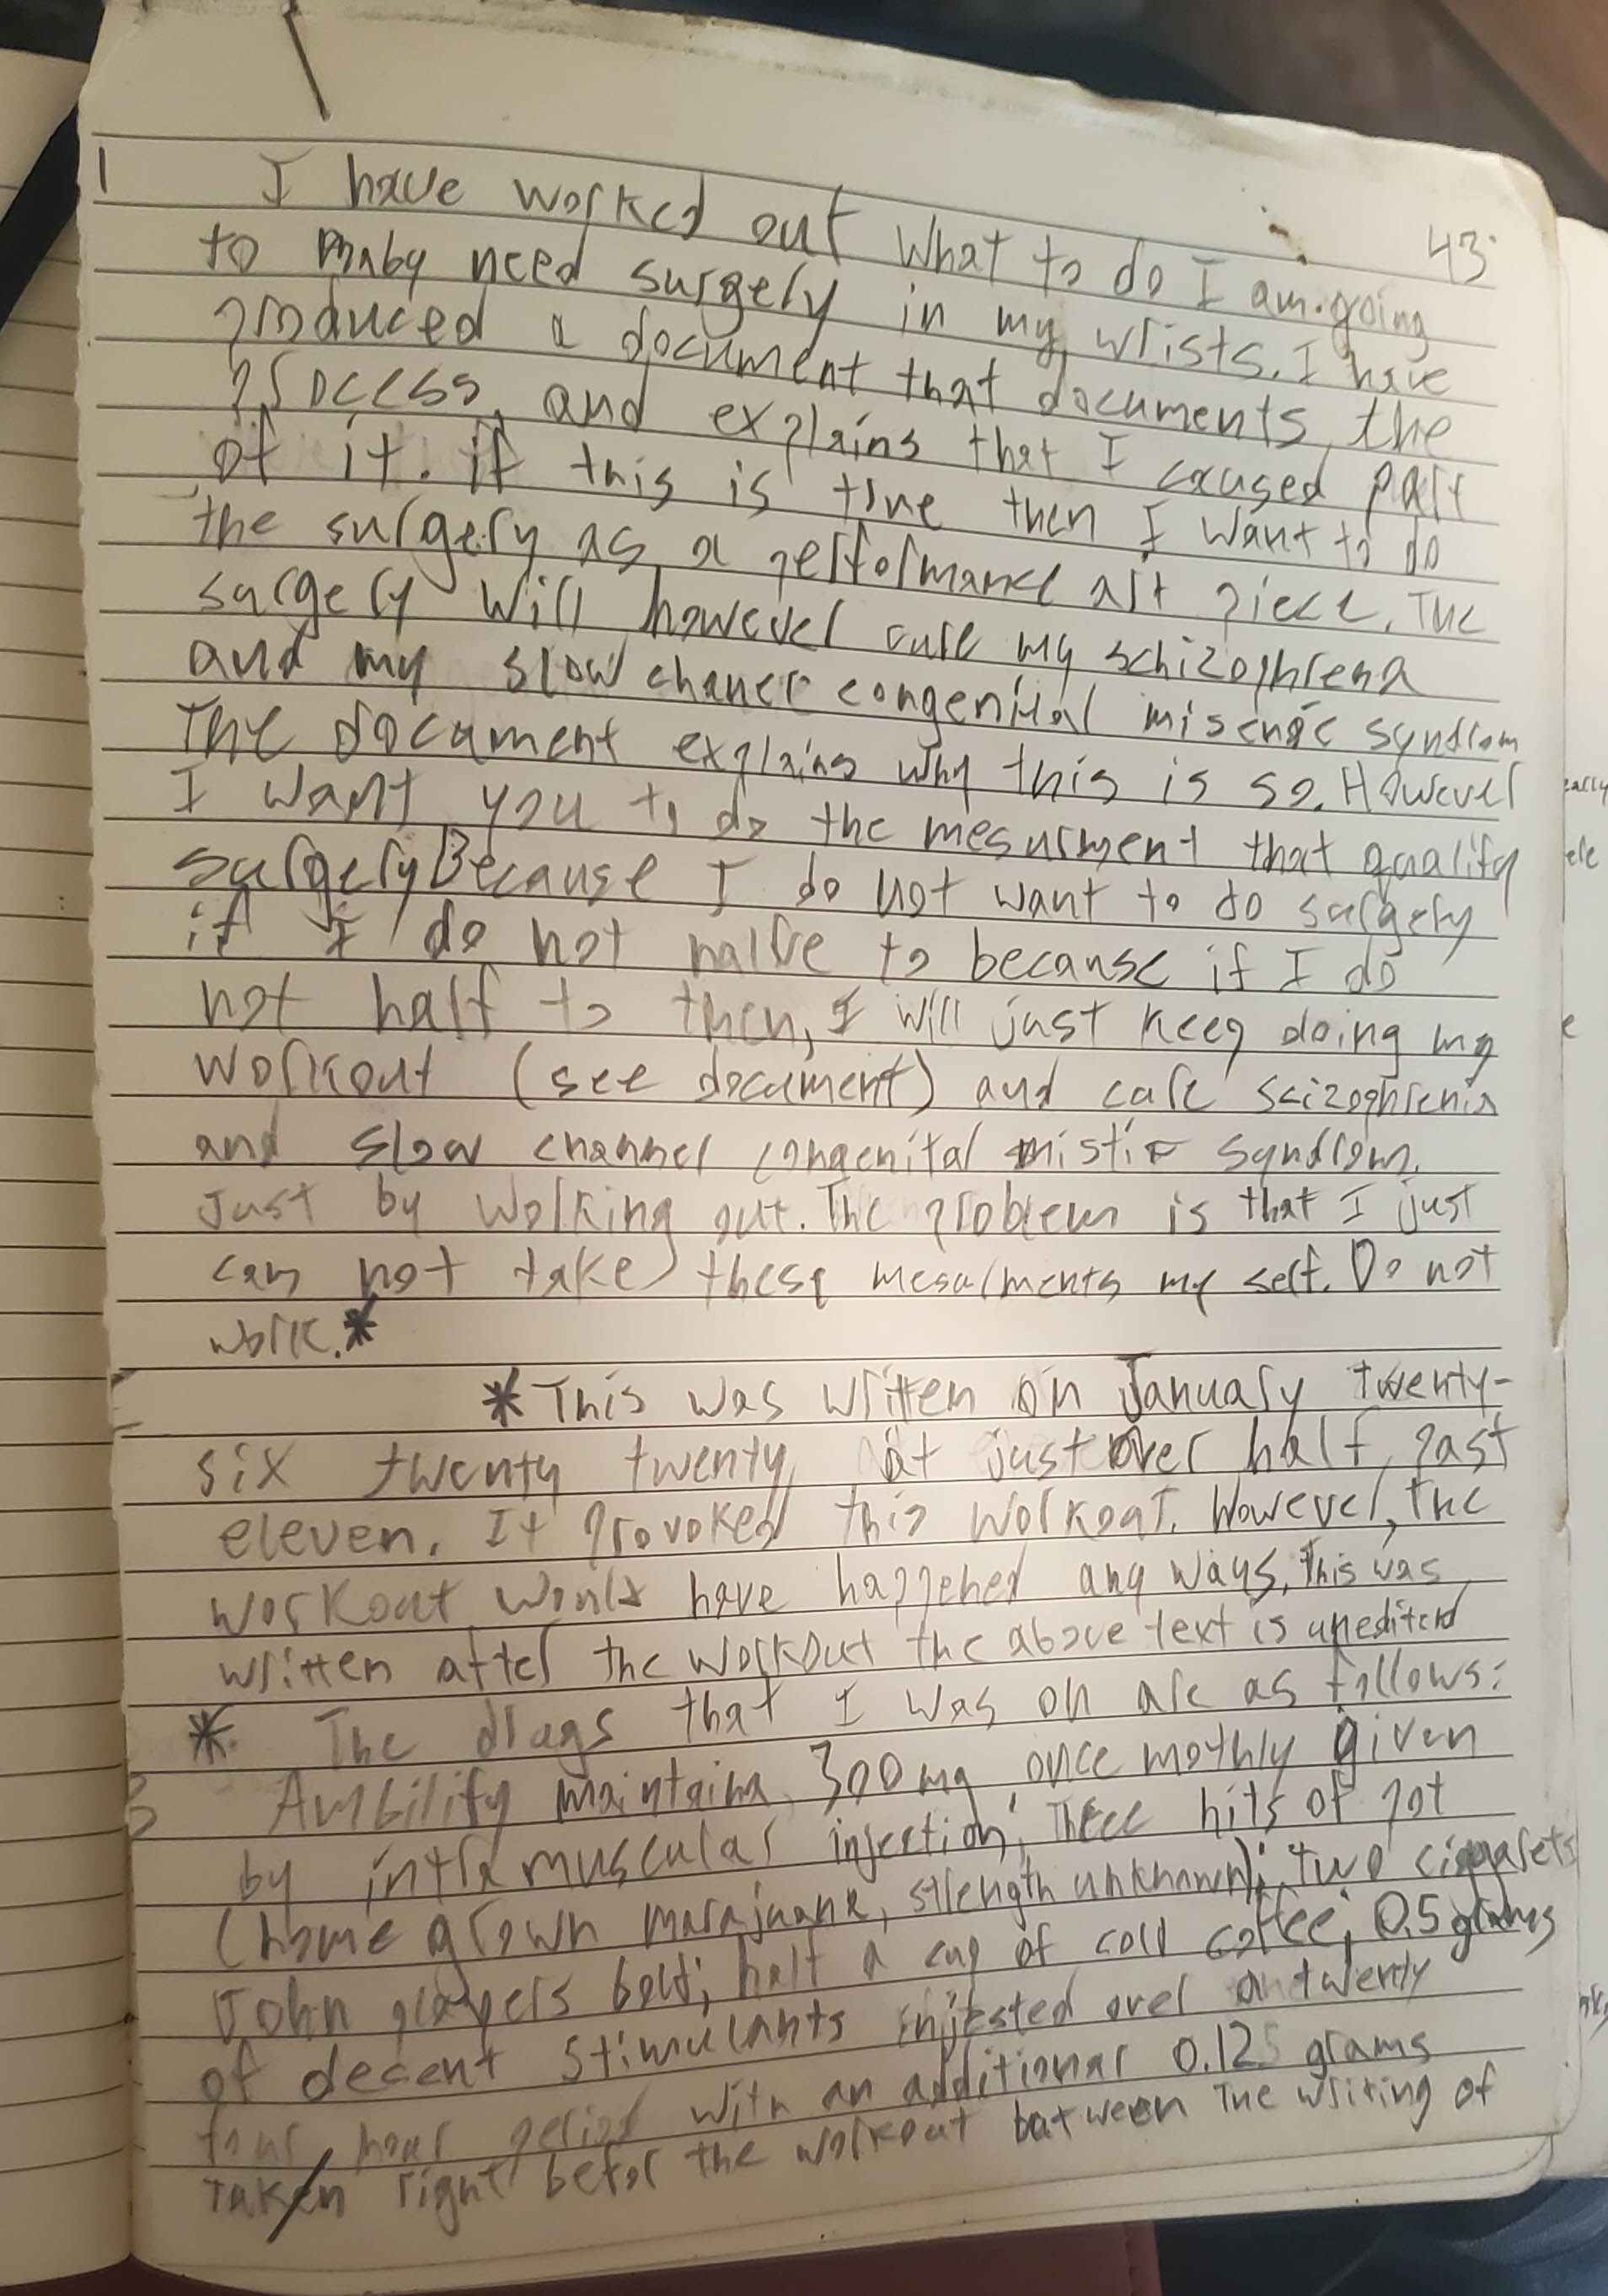 1 I have worked out what to do I am going 43
to maby need surgery in my wrists. I have
produced a document that documents the
process, and explains that I caused part
of it. if this is true then I want to do
the surgery as a performance art piece. The
surgery will however cure my schizophrena
and my slow chanel congenital misenic syndrom
The document explains why this is so. However
I want you to do the mesurment that qualify
surgery Because I do not want to do surgery
if I do not halve to because if I do
not half to then, I will just keep doing my
workout (see document) and cure scizophrenia
and slow channel congenital mistic syndrom.
Just by working out. The problem is that I just
can not take these mesurments my self. Do not
work.*
*This was written on January twenty-
six twenty twenty at just over half past
eleven. It provoked this workout. However, the
workout would have happened any ways. This was
written after the workout the above text is unedited
*. The drugs that I was on are as follows:
Ambilify maintaina 300 mg once mothly given
by intra muscular injection; Three hits of pot
(home grown marajuana, strength unknown); two ciggarets
John players bold; half a cup of cold coffee; 0.5 grams
of decent stimulants injested over a twenty
four hour period with an additional 0.125 grams
taken right befor the workout between The writing of